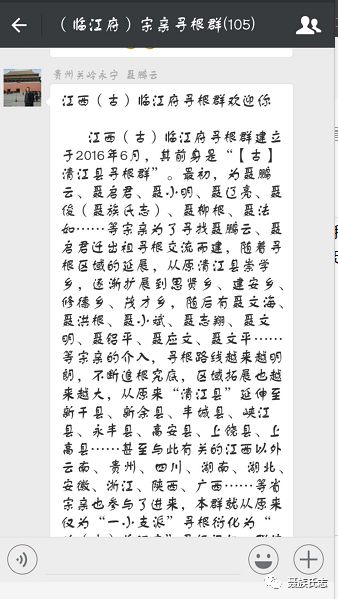 (临江府)宗亲寻根群(105)
贵州关岭永宁 聂鹏云
江西(古)临江府寻根群欢迎你
江西(古)临江府寻根群建立
于2016年6月,其前身是“【古】
清江县寻根群”。最初,为聂鹏
云、聂启君、聂小明、聂辽亮、聂
俊(聂族氏志)、聂柳根、聂法
如……等宗亲为了寻找聂鹏云、聂
启君迁出祖寻根交流而建,随着寻
根区域的延展,从原清江县崇学
乡,逐渐扩展到思贤乡、建安乡、
修德乡、茂才乡,随后有聂文海、
聂洪根、聂小斌、聂志翔、聂文
明、聂绍平、聂应文、聂文平……
等宗亲的介入,寻根路线越来越明
朗,不断追根究底,区域拓展也越
来越大,从原来“清江县”延伸至
新干县、新余县、丰城县、峡江
县、永丰县、高安县、上饶县、上
高县……甚至与此有关的江西以外
云南、贵州、四川、湖南、湖北、
安徽、浙江、陕西、广西……等省
宗亲也参与了进来,本群就从原来
仅为“一小支派”寻根衍化为“
聂族氏志